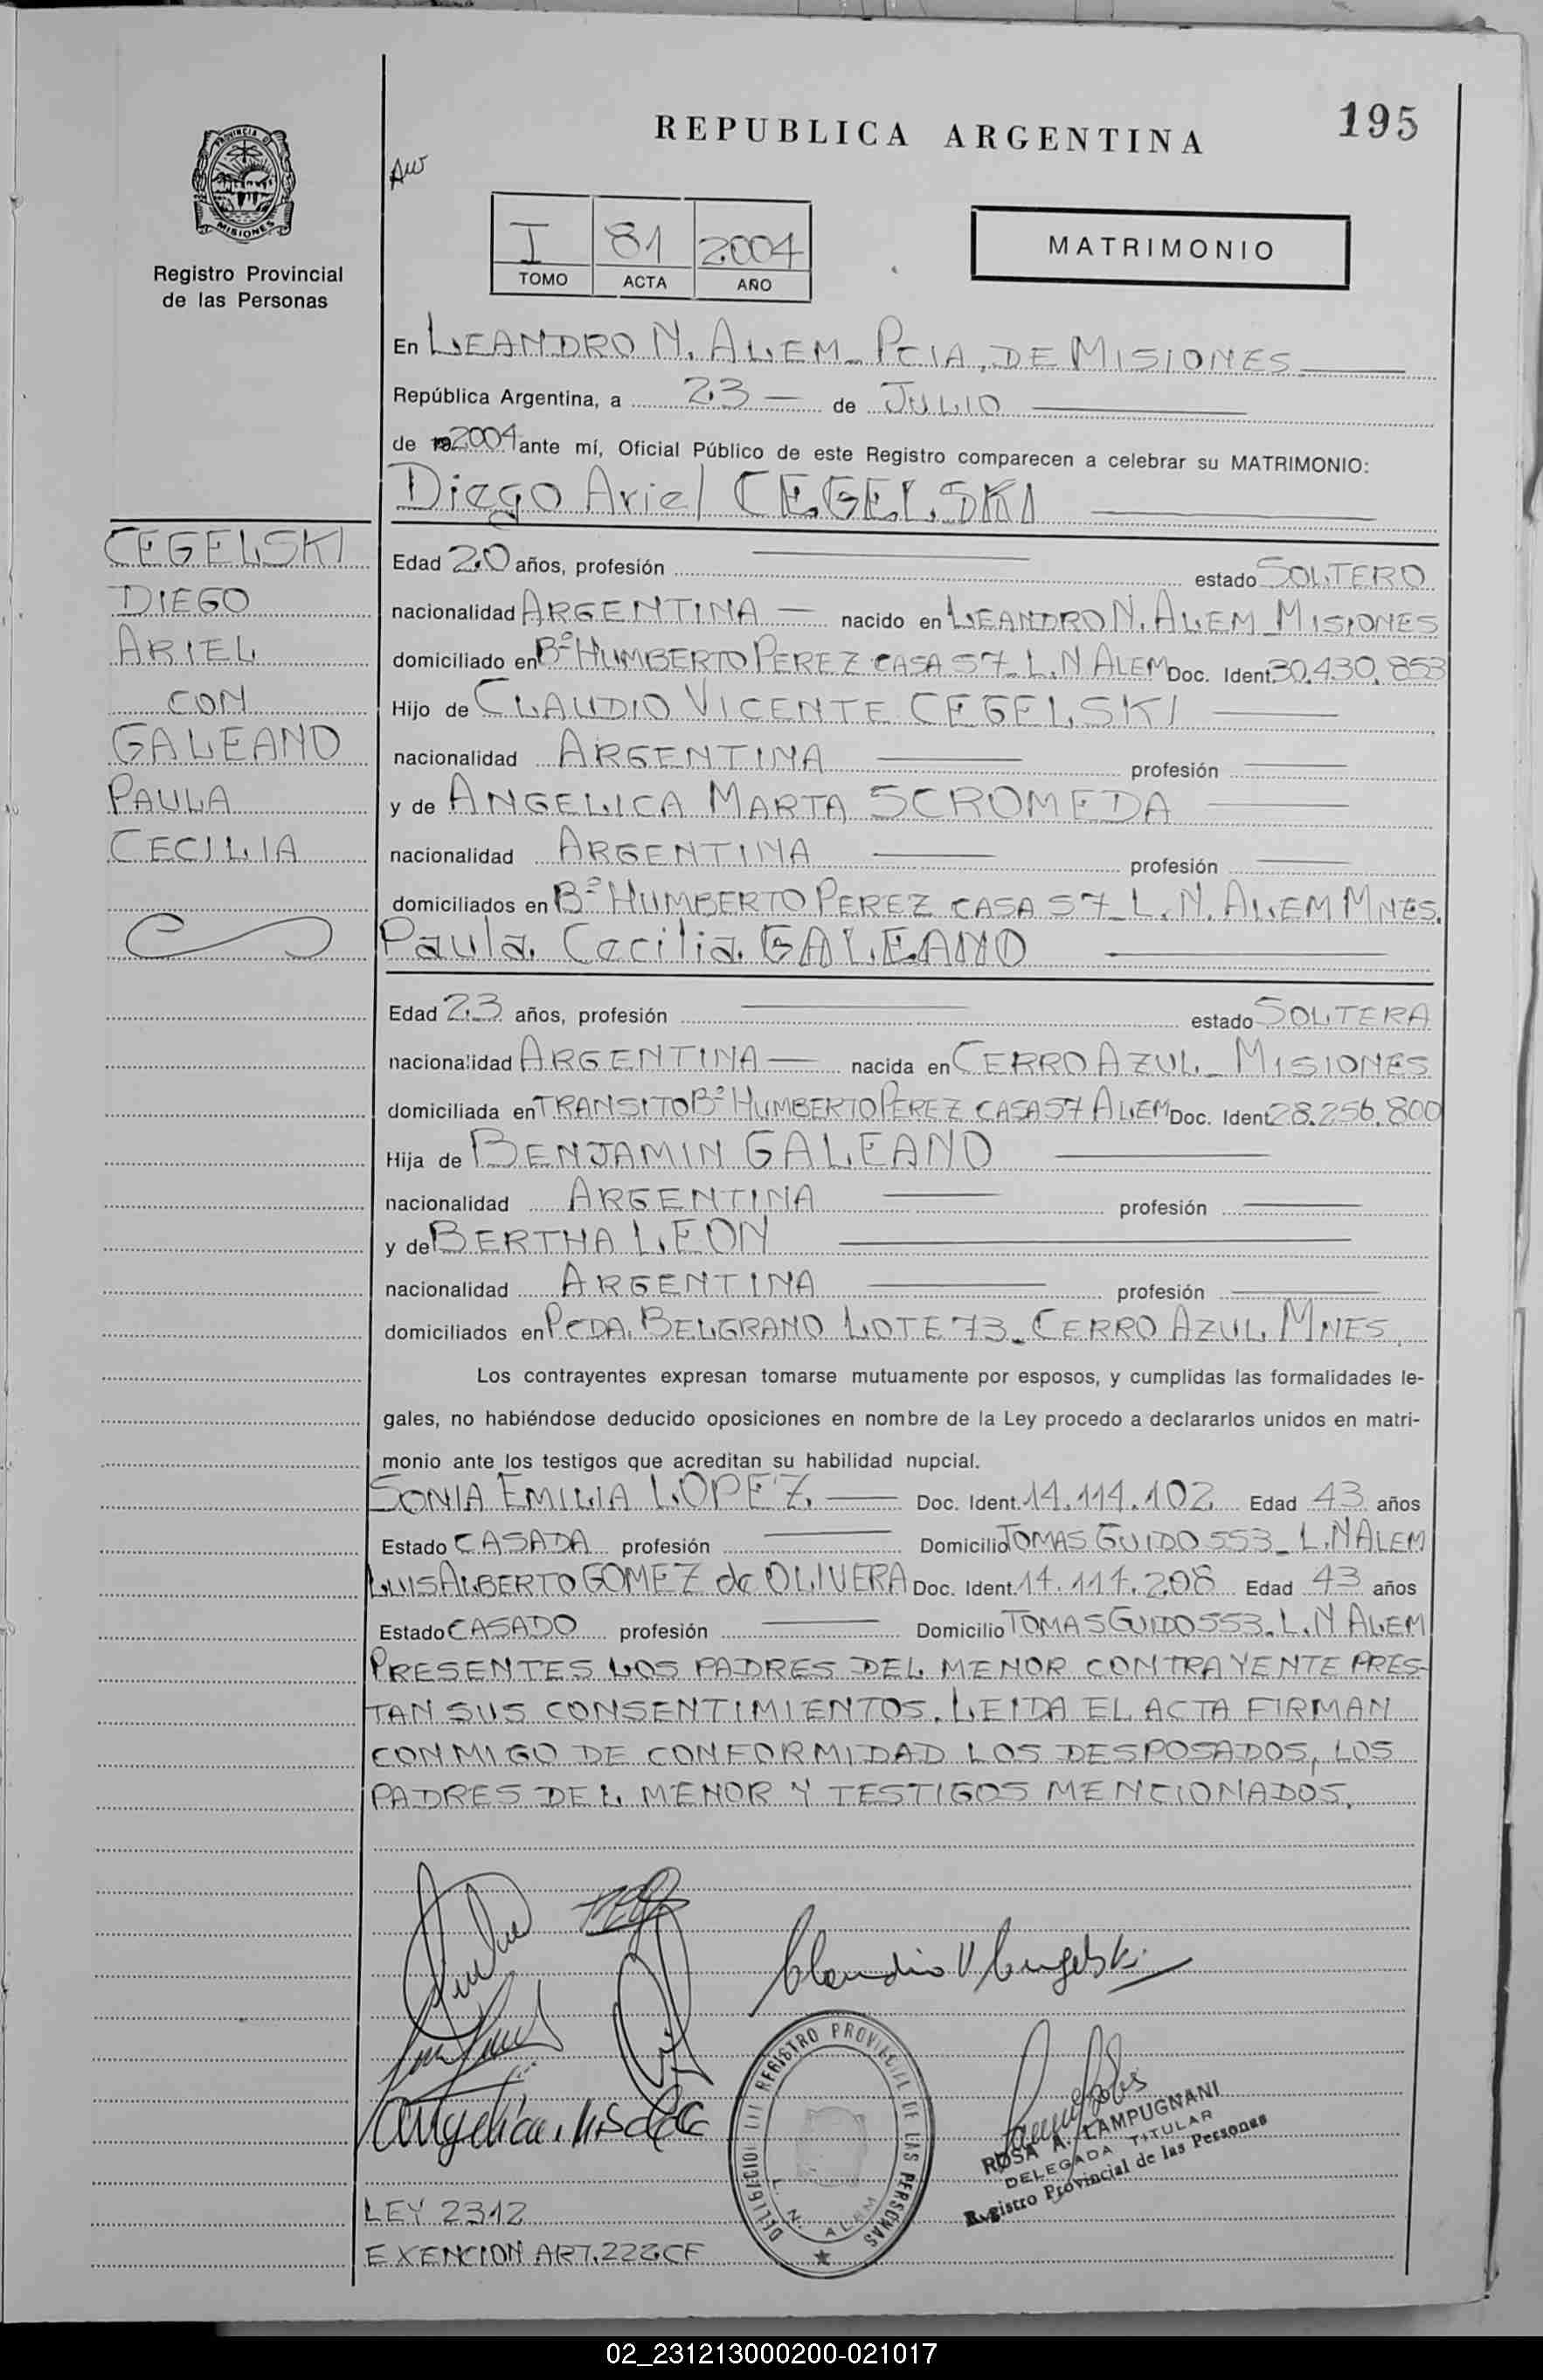 REPUBLICA ARGENTINA
195
PROVINCIA DE
MISIONES
Registro Provincial
de las Personas
I 81 2004
TOMO ACTA AÑO
MATRIMONIO
En LEANDRO N. ALEM - PCIA, DE MISIONES
República Argentina, a 23 de JULIO
de 19 2004 ante mí, Oficial Público de este Registro comparecen a celebrar su MATRIMONIO:
Diego Ariel CEGELSKI
CEGELSKI
DIEGO
ARIEL
CON
GALEANO
PAULA
CECILIA
Edad 20 años, profesión estado SOLTERO
nacionalidad ARGENTINA nacido en LEANDRO N. ALEM MISIONES
domiciliado en Bº HUMBERTO PEREZ CASA 57 - L.N ALEM Doc. Ident. 30.430.853
Hijo de CLAUDIO VICENTE CEGELSKI
nacionalidad ARGENTINA profesión
y de ANGELICA MARTA SCROMEDA
nacionalidad ARGENTINA profesión
domiciliados en Bº HUMBERTO PEREZ CASA 57 - L. N. ALEM MNES.
Paula Cecilia GALEANO
Edad 23 años, profesión estado SOLTERA
nacionalidad ARGENTINA nacida en CERRO AZUL - MISIONES
domiciliada en TRANSITO Bº HUMBERTO PEREZ CASA 57 ALEM Doc. Ident. 28.256.800
Hija de BENJAMIN GALEANO
nacionalidad ARGENTINA profesión
y de BERTHA LEON
nacionalidad ARGENTINA profesión
domiciliados en PCDA. BELGRANO LOTE 73 - CERRO AZUL MNES
Los contrayentes expresan tomarse mutuamente por esposos, y cumplidas las formalidades le-
gales, no habiéndose deducido oposiciones en nombre de la Ley procedo a declararlos unidos en matri-
monio ante los testigos que acreditan su habilidad nupcial.
SONIA EMILIA LOPEZ Doc. Ident. 14.114.102 Edad 43 años
Estado CASADA profesión Domicilio TOMAS GUIDO 553 - L.N ALEM
LUIS ALBERTO GOMEZ de OLIVERA Doc. Ident. 14.114.208 Edad 43 años
Estado CASADO profesión Domicilio TOMAS GUIDO 553 - L.N ALEM
PRESENTES LOS PADRES DEL MENOR CONTRAYENTE PRES-
TAN SUS CONSENTIMIENTOS. LEIDA EL ACTA FIRMAN
CONMIGO DE CONFORMIDAD LOS DESPOSADOS, LOS
PADRES DEL MENOR Y TESTIGOS MENCIONADOS.
Claudio V Cegelski
REGISTRO PROVINCIAL DE LAS PERSONAS
L. N. ALEM
ROSA A. LAMPUGNANI
DELEGADA TITULAR
Registro Provincial de las Personas
LEY 2312
EXENCION ART. 222 CF
02_231213000200-021017